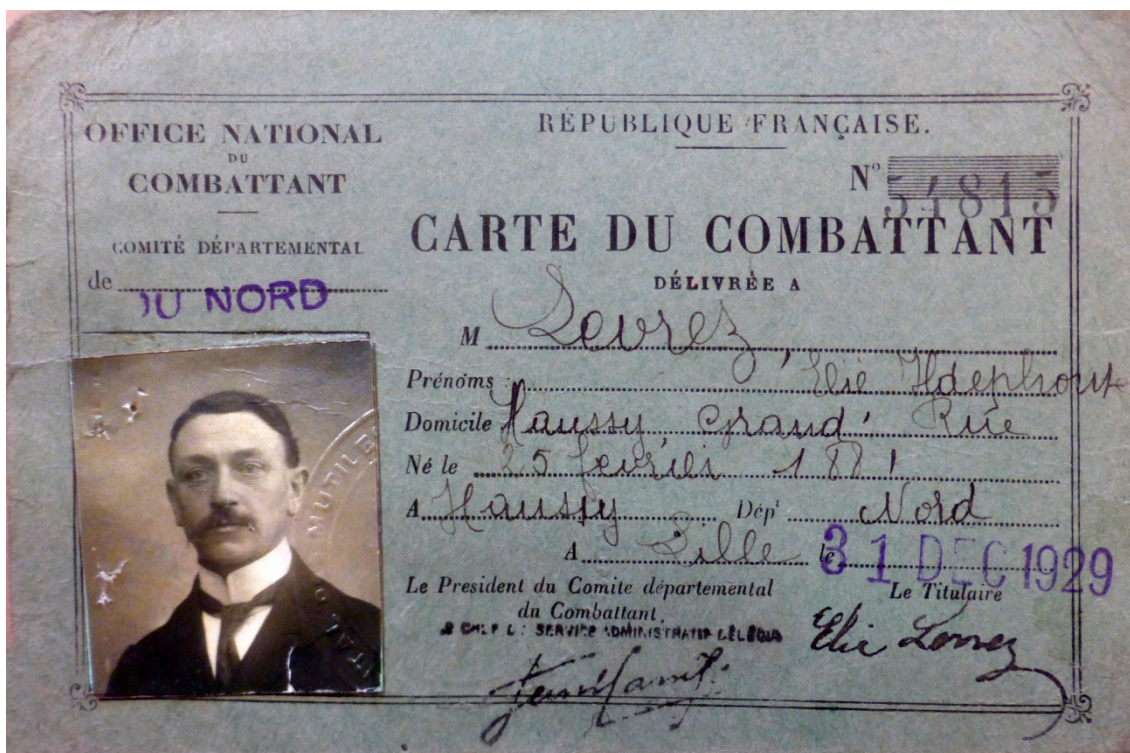 OFFICE NATIONAL
DU
COMBATTANT
COMITÉ DÉPARTEMENTAL
de DU NORD
RÉPUBLIQUE FRANÇAISE.
N° 54815
CARTE DU COMBATTANT
DÉLIVRÉE A
M
Prénoms : Elie Ildephonse
Domicile Haussy, Grand' Rue
Né le 25 février 1881
A Haussy Dépt Nord
A Lille le 31 DEC 1929
Le President du Comite départemental
du Combattant,
SERVICE ADMINISTRATIF
Le Titulaire
Elie
MUTILÉ